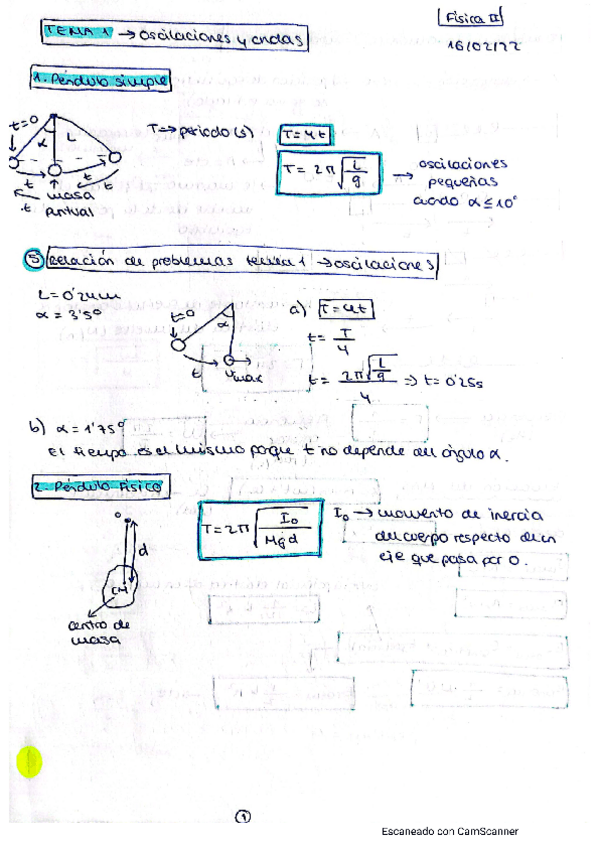 Física II
TEMA 1 → oscilaciones y ondas
16/02/22
1. Péndulo simple
t=0
α
L
t
t
t
t
masa
puntual
T → periodo (s)
T = 4t
T = 2π √(L/g)
→ oscilaciones
pequeñas
cuando α ≤ 10°
⑤ Relación de problemas tema 1 → oscilaciones
L = 0'24m
α = 3'5°
t=0
α
t
vmax
a) T = 4t
t = T/4
t = 2π√(L/g)/4 => t = 0'25s
b) α = 1'75°
El tiempo es el mismo porque t no depende del ángulo α.
2. Péndulo Físico
o
d
CM
centro de
masa
T = 2π √(I₀/Mgd)
I₀ → momento de inercia
del cuerpo respecto de un
eje que pasa por O.
1
Escaneado con CamScanner